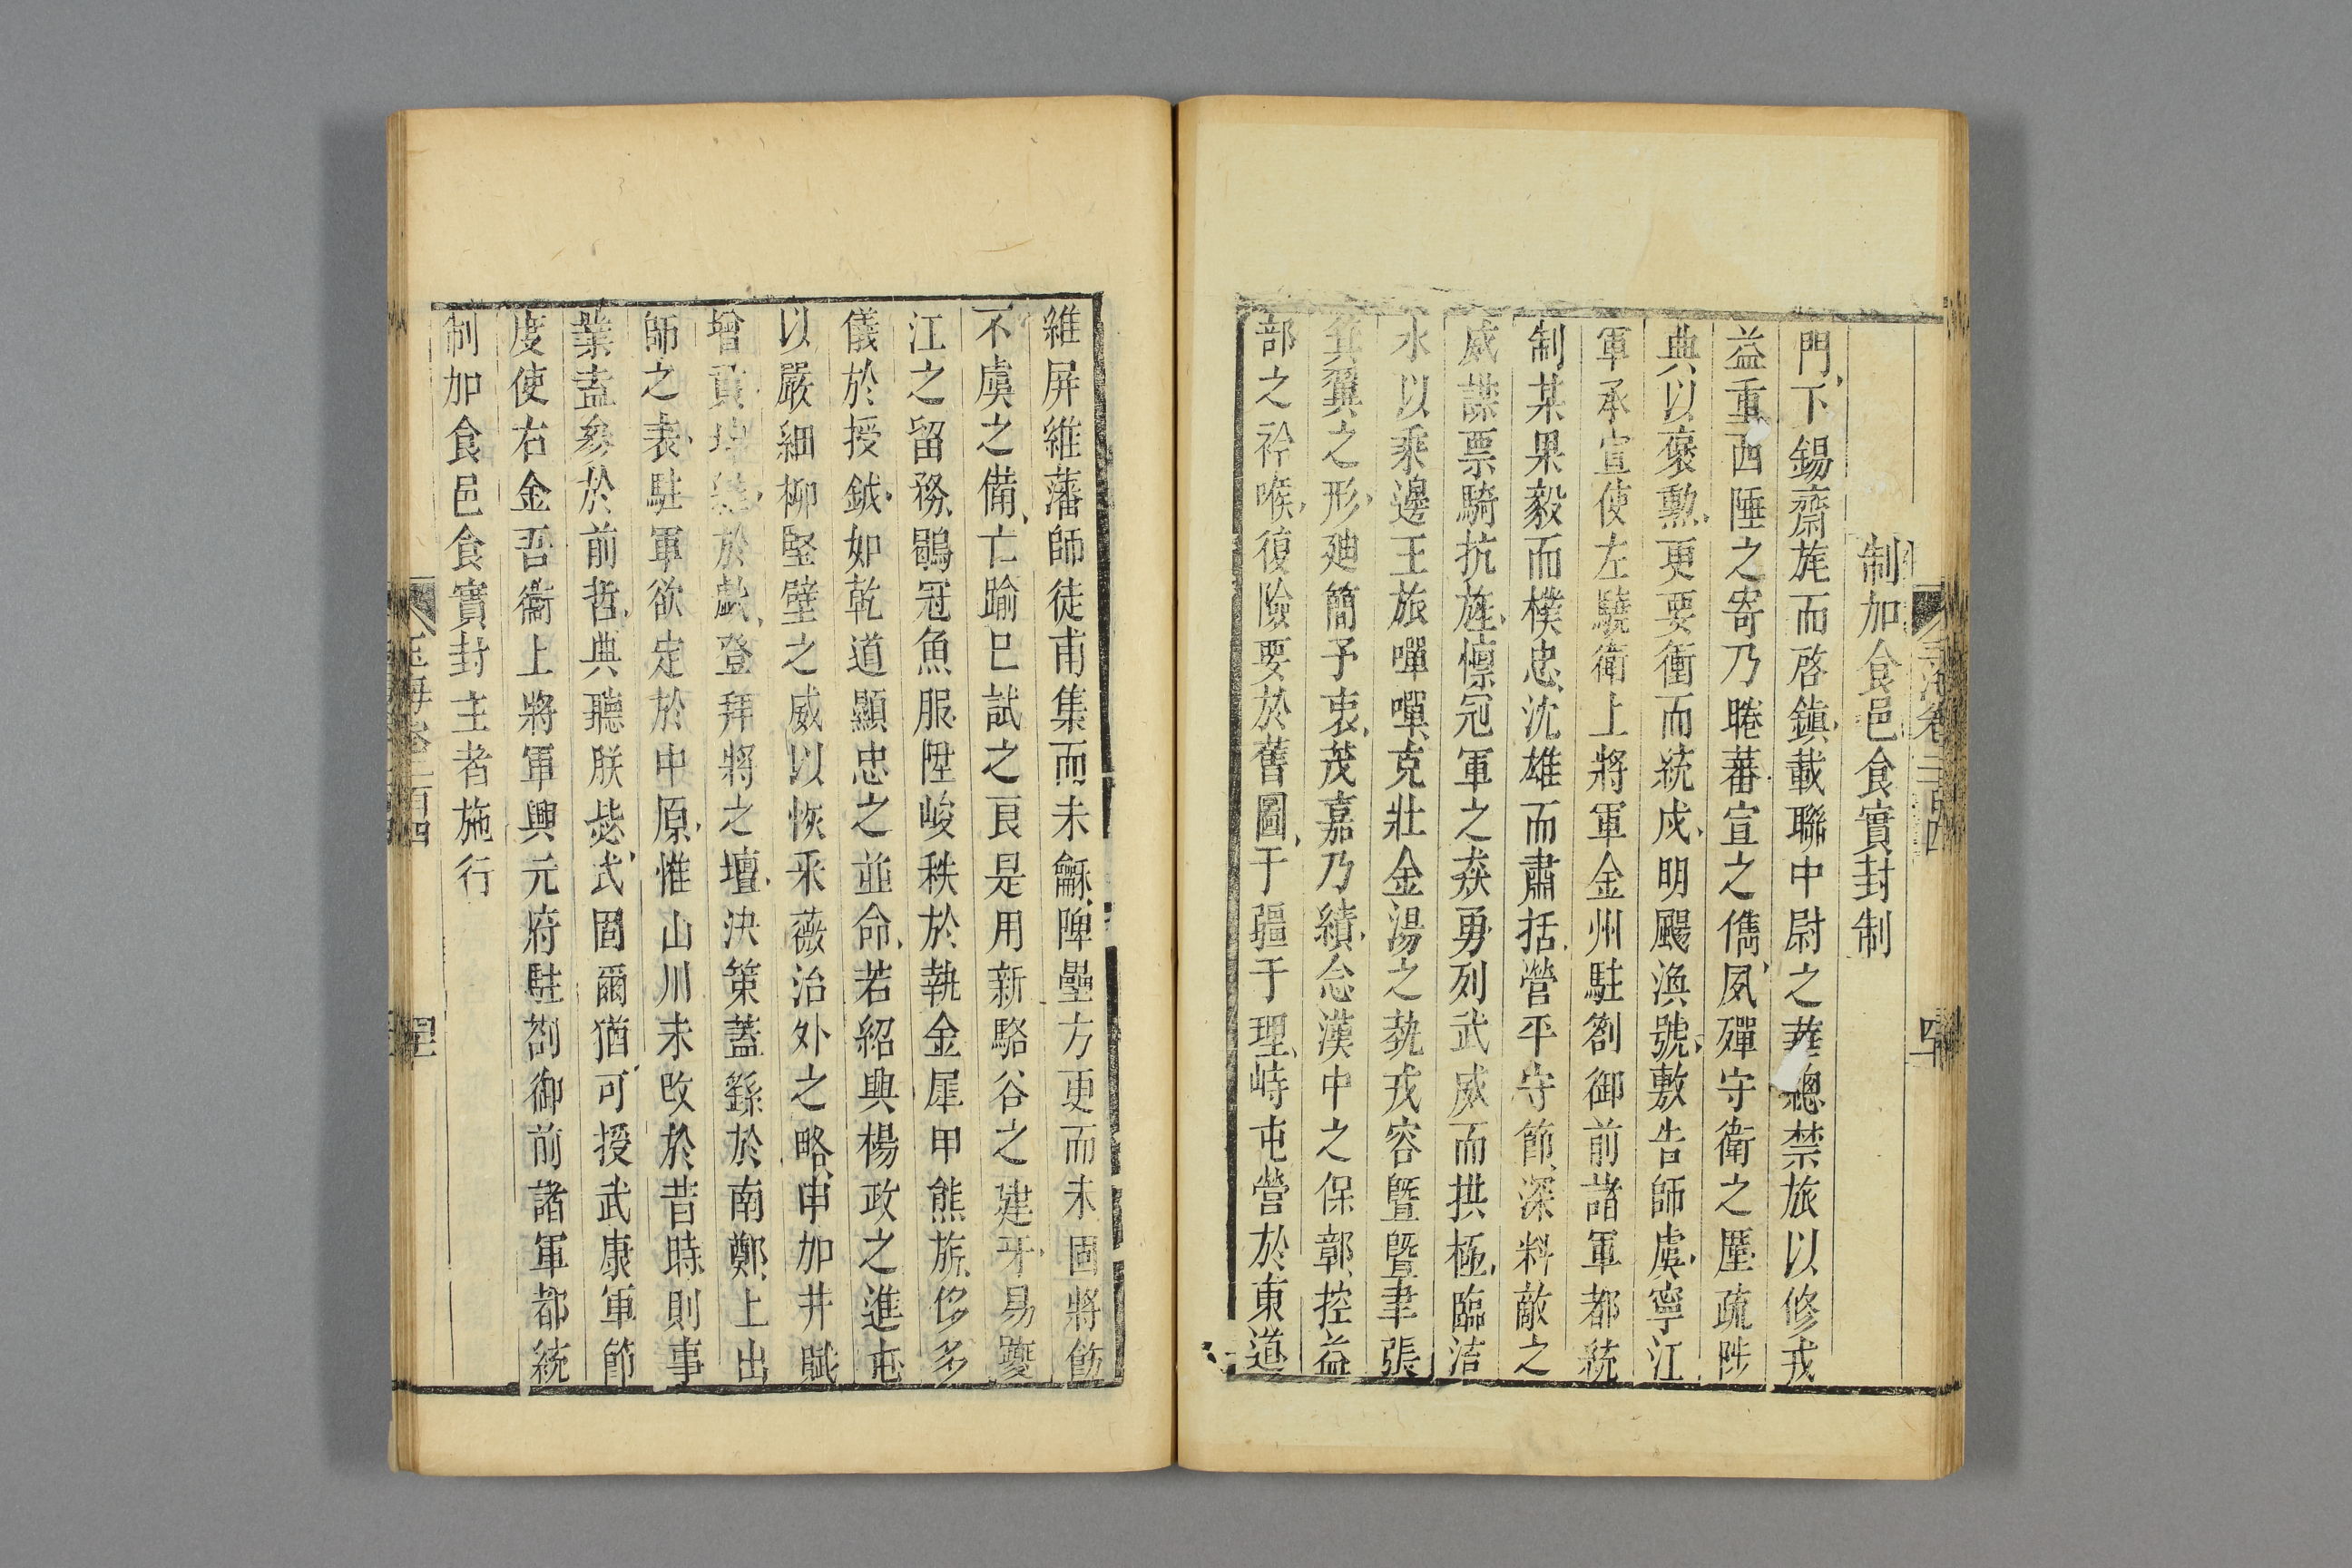 制加食邑食實封制
門下錫齋旄而啓鎮載聯中尉之華總禁旅以修戎
益重西陲之寄乃睠蕃宣之儁夙殫守衛之歷疏陟
典以襃勲更要衝而統戍明颺渙號敷告師虞寧江
軍承宣使左驍衛上將軍金州駐劄御前諸軍都統
制某果毅而樸忠沈雄而肅括營平守節深料敵之
威謀票騎抗旌懍冠軍之猋勇列武威而拱極臨洁
水以乘邊王旅嘽嘽克壯金湯之埶戎容曁曁聿張
箕翼之形廸簡予衷茂嘉乃績念漢中之保鄣控益
部之衿喉復險要於舊圖于疆于理峙屯營於東道
維屏維藩師徒甫集而未龢陴壘方更而未固將飭
不虞之備亡踰巳試之良是用新駱谷之建牙易夔
江之留務鶡冠魚服陞峻秩於執金犀甲熊旂侈多
儀於授鉞如乾道顯忠之並命若紹興楊政之進屯
以嚴細柳堅壁之威以恢采薇治外之略申加井賦
增賁於戲登拜將之壇決策蓋繇於南鄭上出
師之表駐軍欲定於中原惟山川未攺於昔時則事
業盍參於前哲典聽朕毖式固爾猶可授武康軍節
度使右金吾衞上將軍興元府駐劄御前諸軍都統
制加食邑食實封主者施行
玉海卷二百四